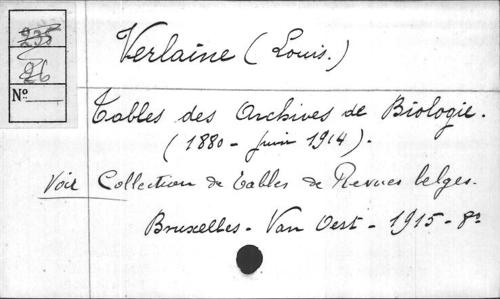 235
26
Nº
Verlaine (Louis.)
Tables des Archives de Biologie.
(1880 - Juin 1914).
Voir Collection de Tables de Revues belges.
Bruxelles - Van Oest - 1915 - 8º